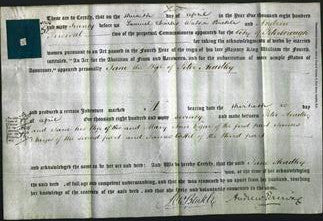 These are to Certify, that on the thirtieth day of April in the Year One thousand eight hundred
and seventy before us Samuel Charles Watson Buckle and Andrew
Percival two of the perpetual Commissioners appointed for the City of Peterborough
for taking the acknowledgments of deeds by married
women pursuant to an Act passed in the Fourth Year of the reign of his late Majesty King William the Fourth,
intituled, "An Act for the Abolition of Fines and Recoveries, and for the substitution of more simple Modes of
Assurance," appeared personally Jane the Wife of Peter Headley
and produced a certain Indenture marked A bearing date the thirtieth day
of April One thousand eight hundred and seventy and made between Peter Headley
and Jane his Wife of the and Mary of the first part
of the second part and of the third part
and acknowledged the same to be her act and deed: And We do hereby Certify, that the said Jane Headley
was, at the time of her acknowledging
the said deed, of full age and competent understanding, and that she was examined by us apart from her husband, touching
her knowledge of the contents of the said deed, and that she freely and voluntarily consented to the same.
Andrew Percival